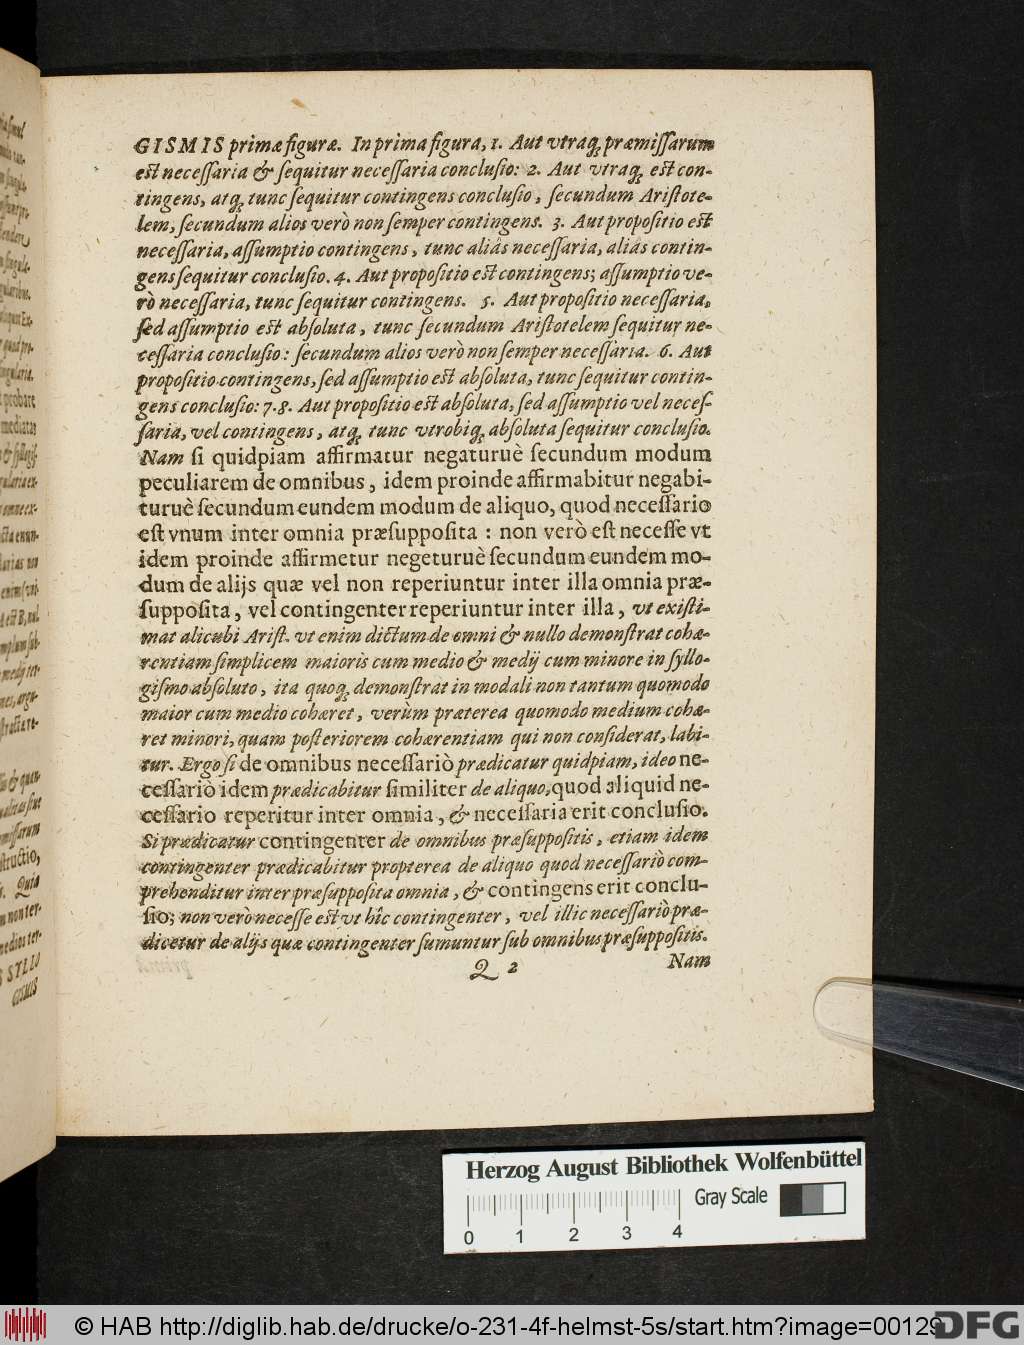 GISMIS primæ figuræ. In prima figura, 1. Aut vtraq; præmissarum
est necessaria & sequitur necessaria conclusio: 2. Aut vtraq; est con-
tingens, atq; tunc sequitur contingens conclusio, secundum Aristote-
lem, secundum alios verò non semper contingens. 3. Aut propositio est
necessaria, assumptio contingens, tunc aliàs necessaria, aliàs contin-
gens sequitur conclusio. 4. Aut propositio est contingens; assumptio ve-
rò necessaria, tunc sequitur contingens. 5. Aut propositio necessaria,
sed assumptio est absoluta, tunc secundum Aristotelem sequitur ne-
cessaria conclusio: secundum alios verò non semper necessaria. 6. Aut
propositio contingens, sed assumptio est absoluta, tunc sequitur contin-
gens conclusio: 7. 8. Aut propositio est absoluta, sed assumptio vel neces-
saria, vel contingens, atq; tunc vtrobiq; absoluta sequitur conclusio.
Nam si quidpiam affirmatur negaturuè secundum modum
peculiarem de omnibus, idem proinde affirmabitur negabi-
turuè secundum eundem modum de aliquo, quod necessario
est vnum inter omnia præsupposita: non verò est necesse vt
idem proinde affirmetur negeturuè secundum eundem mo-
dum de alijs quæ vel non reperiuntur inter illa omnia præ-
supposita, vel contingenter reperiuntur inter illa, vt existi-
mat alicubi Arist. vt enim dictum de omni & nullo demonstrat cohæ-
rentiam simplicem maioris cum medio & medij cum minore in syllo-
gismo absoluto, ita quoq; demonstrat in modali non tantum quomodo
maior cum medio cohæret, verùm præterea quomodo medium cohæ-
ret minori, quam posteriorem cohærentiam qui non considerat, labi-
tur. Ergo si de omnibus necessariò prædicatur quidpiam, ideo ne-
cessariò idem prædicabitur similiter de aliquo, quod aliquid ne-
cessario reperitur inter omnia, & necessaria erit conclusio.
Si prædicatur contingenter de omnibus præsuppositis, etiam idem
contingenter prædicabitur propterea de aliquo quod necessariò com-
prehenditur inter præsupposita omnia, & contingens erit conclu-
sio; non verò necesse est vt hîc contingenter, vel illic necessariò præ-
dicetur de alijs quæ contingenter sumuntur sub omnibus præsuppositis.
Q 2 Nam
Herzog August Bibliothek Wolfenbüttel
Gray Scale
0 1 2 3 4
© HAB http://diglib.hab.de/drucke/o-231-4f-helmst-5s/start.htm?image=00129
DFG